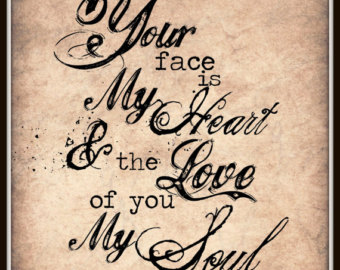 Your
face
is
My Heart
& the Love
of you
My Soul